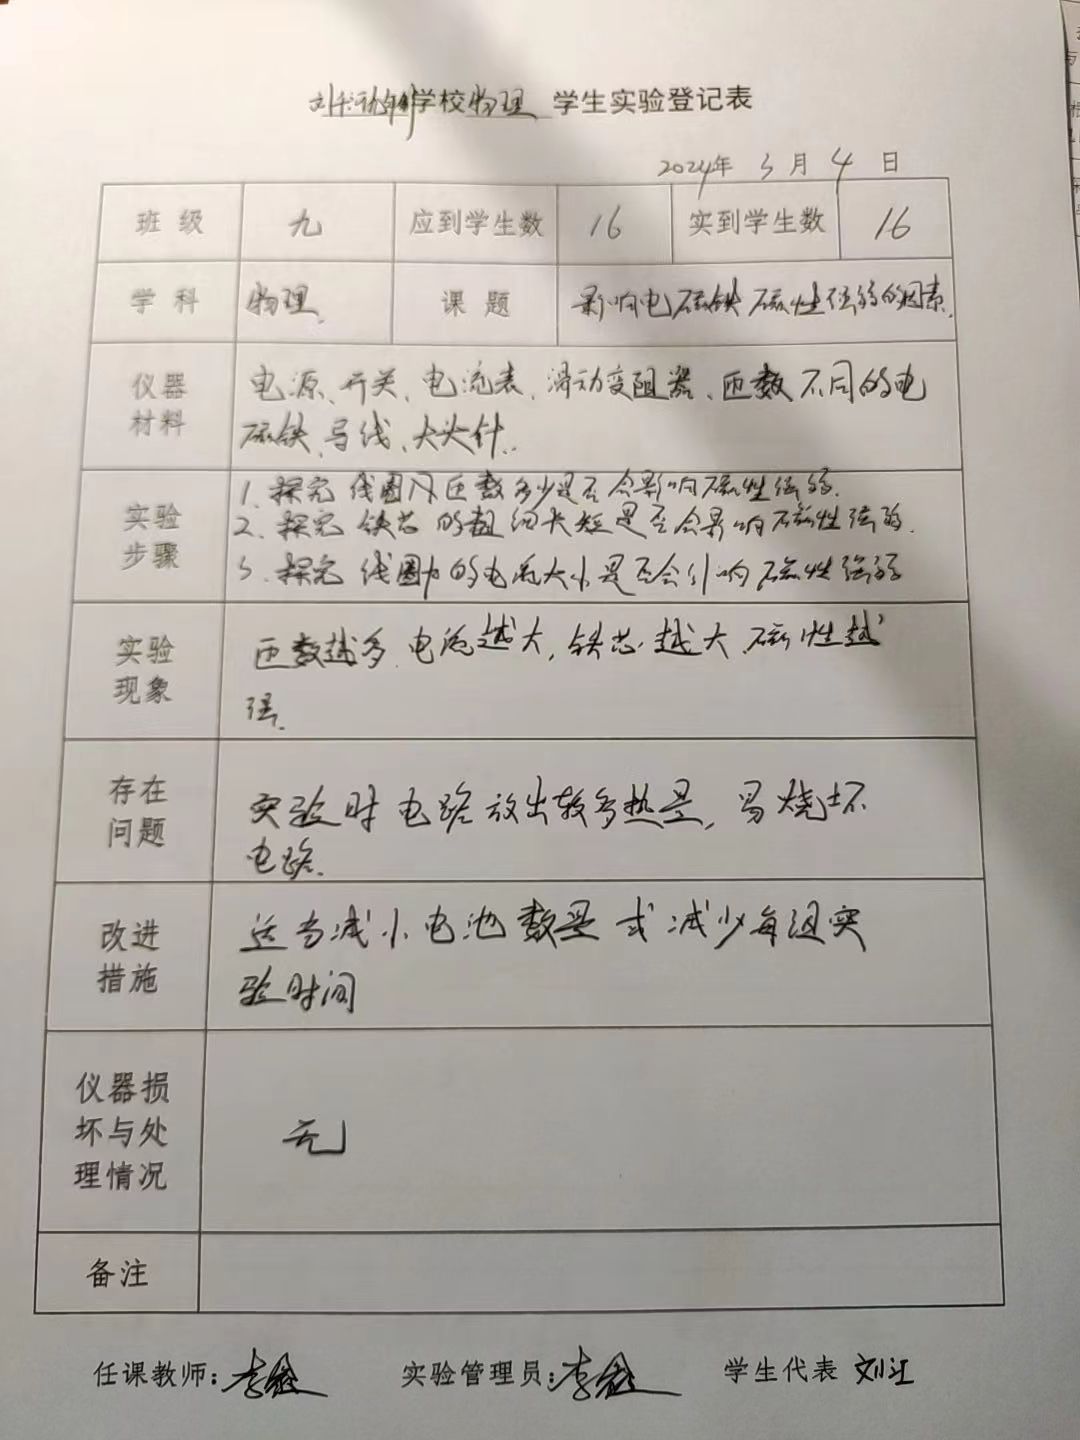 学校物理 学生实验登记表
2024年 3月 4 日
班 级 九 应到学生数 16 实到学生数 16
学 科 物理. 课 题 影响电磁铁磁性强弱的因素.
仪器材料
电源、开关、电流表、滑动变阻器、匝数不同的电
磁铁、导线、大头针.
实验步骤
1. 探究线圈匝数多少是否会影响磁性强弱.
2. 探究铁芯的粗细长短是否会影响磁性强弱.
3. 探究线圈的电流大小是否会引响磁性强弱
实验现象
匝数越多、电流越大, 铁芯越大、磁性越
强.
存在问题
实验时电路放出较多热量, 易烧坏
电路.
改进措施
适当减小电池数量或减少每组实
验时间
仪器损坏与处理情况
无
备注
任课教师: 实验管理员: 学生代表 刘江